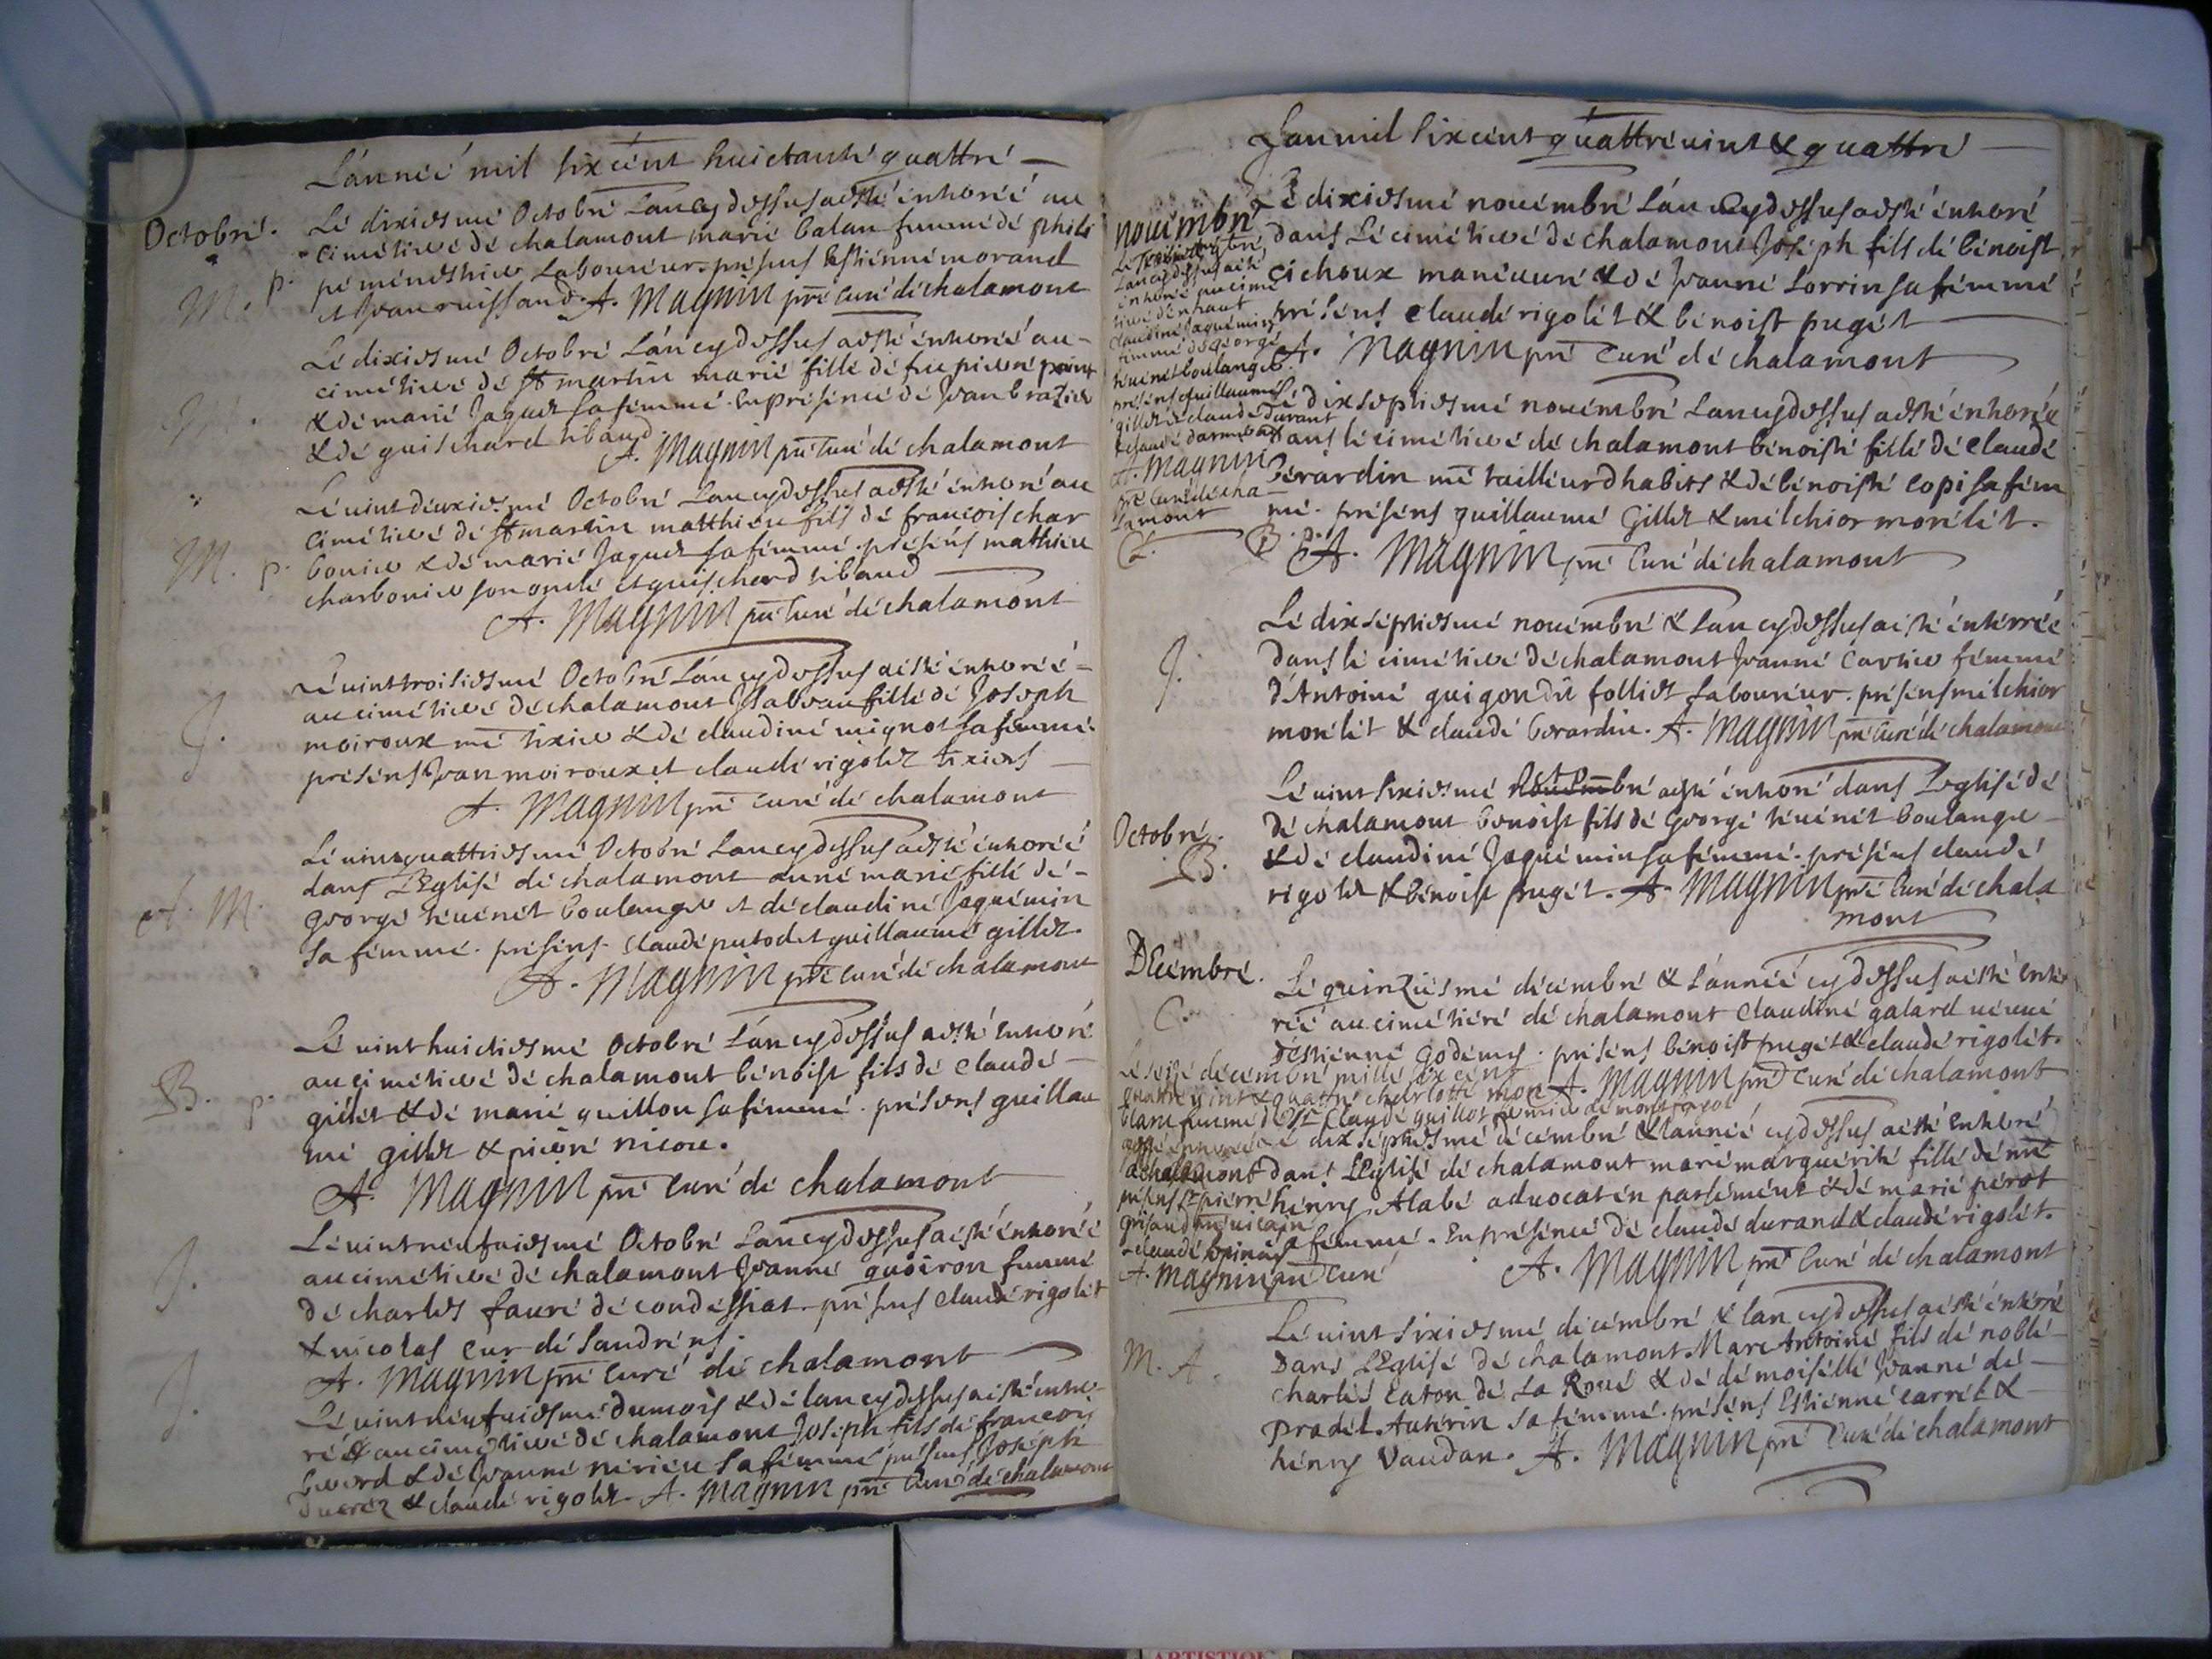 L'année mil six cent huictante quattre
Octobre.
Le dixiesme Octobre Lan cy dessus a esté enterrée au
cimetiere de chalamont marie balan femme de phili
pe menestrier Laboureur presens Estienne morand
et Jean ruissand. A. Magnin pre curé de chalamont
M. p.
Le dixiesme Octobre Lan cy dessus a esté enterrée au
cimetiere de St martin marie fille de feu pierre
& de marie Jaquet sa femme. En presence de Jean brazier
& de guischard tibaud
A. Magnin pre curé de chalamont
M.
Le vint deuxiesme Octobre Lan cy dessus a esté enterré au
cimetiere de St martin matthieu fils de francois char
bonier & de marie Jaquet sa femme. presens mathieu
charbonier son oncle et guischard tibaud
A. Magnin pre curé de chalamont
M. p.
Le vint troisiesme Octobre Lan cy dessus a esté enterrée
au cimetiere de chalamont Isabeau fille de Joseph
moiroux me tixier & de claudine mignot sa femme.
presens Jean moiroux et claude rigolet tixiers
A. Magnin pre curé de chalamont
J.
Le vint quattriesme Octobre Lan cy dessus a esté enterrée
dans L'Eglise de chalamont anne marie fille de
george tevenet boulanger et de claudine Jaquemin
sa femme. presens. claude putod et guillaume gillet.
A. Magnin pre curé de chalamont
A. M.
Le vint huictiesme Octobre Lan cy dessus a esté enterré
au cimetiere de chalamont benoist fils de claude
gillet & de marie guillon sa femme. presens guillau
me gillet & pierre
A. Magnin pre curé de chalamont
B. p.
Le vint neufuiesme Octobre Lan cy dessus a esté enterrée
au cimetiere de chalamont Jeanne femme
de charles faure de condessiat. presens claude rigolet
& nicolas cur de Sandrens.
A. Magnin pre curé de chalamont
J.
Le vint neufuiesme du mois & de lan cy dessus a esté enter-
ré au cimetiere de chalamont Joseph fils de francois
& de Jeanne sa femme presens Joseph
& claude rigolet. A. Magnin pre Curé de chalamont
J.
Lan mil six cent quattre vint & quattre
novembre
Le dixiesme novembre Lan cy dessus a esté enterré
dans Le cimetiere de chalamont Joseph fils de benoist
cichoux maneuure & de Jeanne Lorrin sa femme
presens claude rigolet & benoist puget
A. Magnin pre Curé de chalamont
Lan cy dessus a esté
enterrée au cime
tiere
claudine Jaquemin
femme de george
tevenet boulanger
presens guillaume
gillet & claude durant
A. Magnin
pre curé de cha
lamont
C.
Le dix septiesme novembre Lan cy dessus a esté enterrée
dans le cimetiere de chalamont benoiste fille de claude
berardin me tailleur d habits & de benoiste copi sa fem
me. presens guillaume Gillet & melchior morelet.
A. Magnin pre Curé de chalamont
B.
Le dix septiesme novembre & Lan cy dessus a esté enterrée
dans le cimetiere de chalamont Jeanne Cartier femme
d'Antoine guigon dit folliet Laboureur. presens melchior
morelet & claude berardin. A. Magnin pre Curé de chalamont
J.
Octobre.
Le vint sixiesme Octobre a esté enterré dans L'eglise de
de chalamont benoist fils de George tevenet boulanger
& de claudine Jaquemin sa femme. presens claude
rigolet & benoist puget. A. Magnin pre Curé de chala
mont
B.
Decembre.
Le quinziesme decembre & L'année cy dessus a esté enter
rée au cimetiere de chalamont Claudine galard veuue
d'estienne godemy. presens benoist puget & claude rigolet.
A. Magnin pre Curé de chalamont
C.
Le seize decembre mille six cent
quattre vint & quattre charlotte mon
blanc femme de Sr claude guillot
a esté enterrée
a chalamont
presens Sr pierre
& claude
A. Magnin pre Curé
Le dix septiesme decembre & L'année cy dessus a esté enterré
dans L'Eglise de chalamont marie marguerite fille de me
henry Alabé aduocat en parlement & de marie perot
sa femme. En presence de claude durand & claude rigolet.
A. Magnin pre Curé de chalamont
Le vint sixiesme decembre & lan cy dessus a esté enterré
Dans L'Eglise de chalamont Marc Antoine fils de noble
Charles Caton de La Roue & de demoiselle Jeanne de
Pradel Auterin sa femme. presens Estienne carret &
henry Vaudan. A. Magnin pre Curé de chalamont
M. A.
ARTISTIQUE